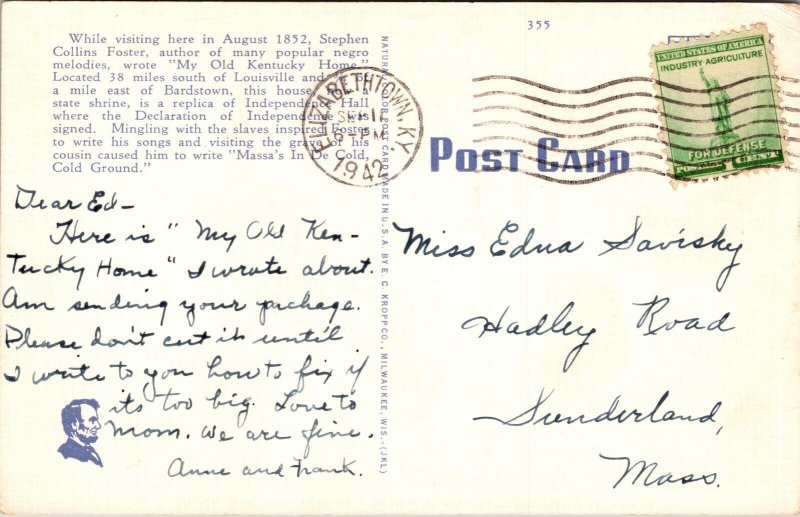 While visiting here in August 1852, Stephen
Collins Foster, author of many popular negro
melodies, wrote "My Old Kentucky Home."
Located 38 miles south of Louisville and
a mile east of Bardstown, this house, now a
state shrine, is a replica of Independence Hall
where the Declaration of Independence was
signed. Mingling with the slaves inspired Foster
to write his songs and visiting the grave of his
cousin caused him to write "Massa's In De Cold,
Cold Ground."
Dear Ed-
Here is "My Old Ken-
tucky Home" I wrote about.
Am sending your package.
Please don't cut it until
I write to you how to fix if
its too big. Love to
Mom. We are fine.
Anne and Frank.
NATURAL COLOR POST CARD MADE IN U.S.A. BY E. C. KROPP CO., MILWAUKEE, WIS.-(JKL)
355
ELIZABETHTOWN, KY.
SEP 11
6 - PM
1942
UNITED STATES OF AMERICA
INDUSTRY-AGRICULTURE
FOR DEFENSE
POSTAGE 1 CENT
POST CARD
Miss Edna Savisky
Hadley Road
Sunderland,
Mass.